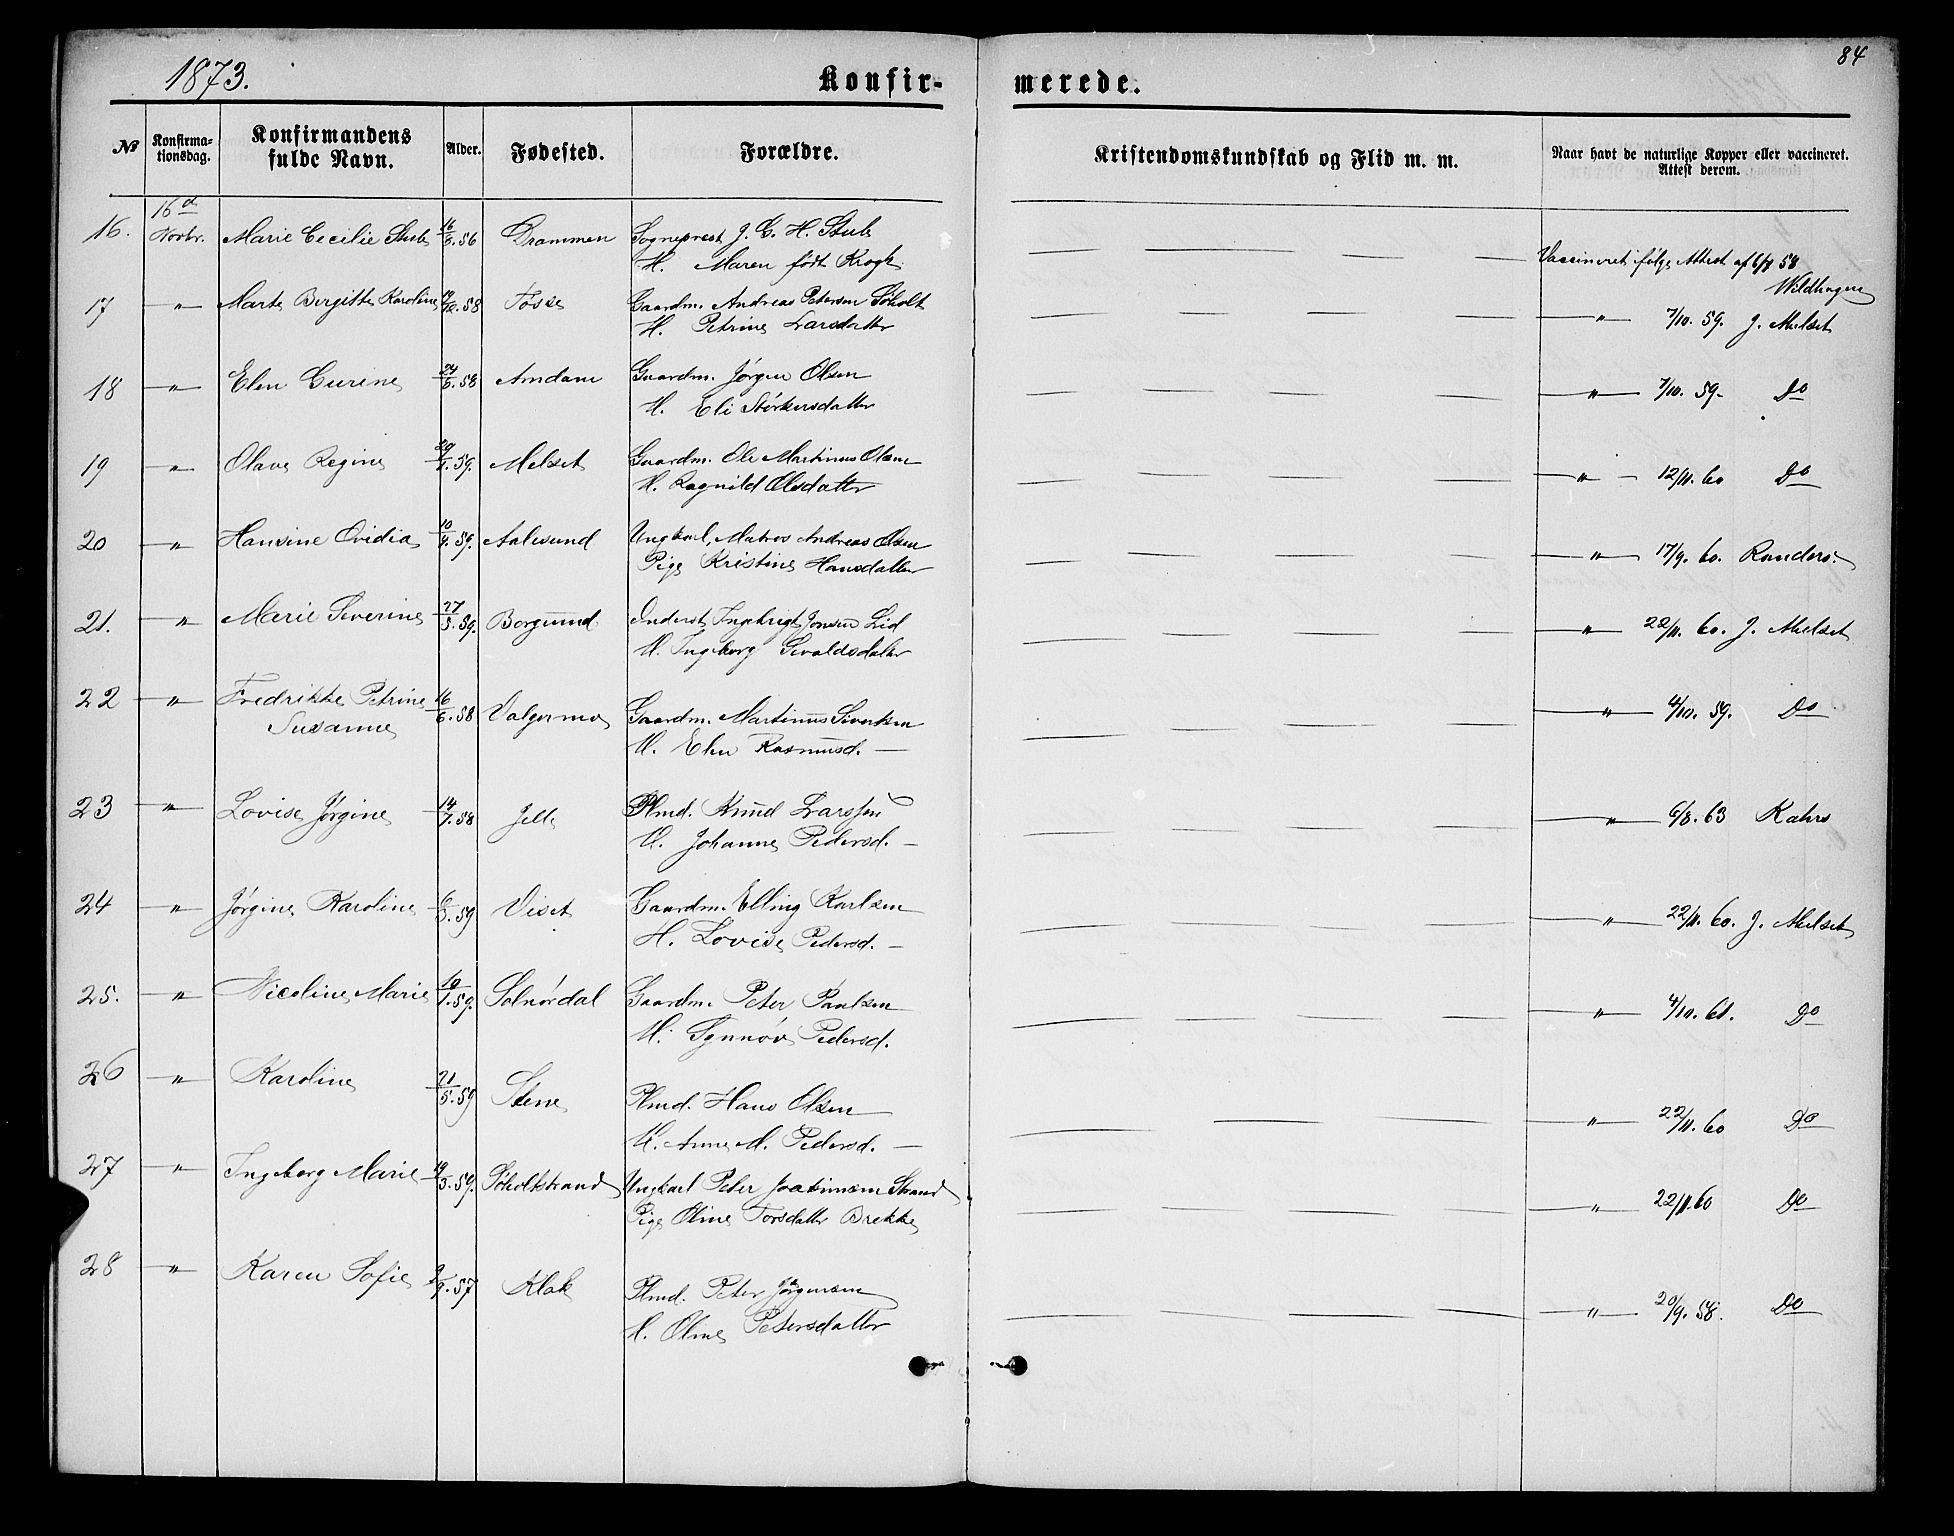 1873. Konfir- merede. 84
No Konfirmationsdag. Konfirmandens fulde Navn. Alder. Fødested. Forældre. Kristendomskundskab og Flid m. m. Naar havt de naturlige Kopper eller vaccineret. Attest derom.
16. 16d Novbr. Marie Cecilie Stub 16/6.56 Drammen Sogneprest J. G. H. Stub
H. Maren født Krogh. Vaccineret ifølge Attest af 6/8 58 Wildhagen
17 " Marte Bergitte Karoline 58 Fosse Gaardm. Andreas Petersen Søholt
H. Petrine Larsdatter " 7/10. 59. J. Melset
18 " Elen Gurine 24/6.58 Amdam Gaardm. Jørgen Olsen
H. Eli Størkersdatter " 7/10. 59. Do
19 " Olave Regine 59. Melset Gaardm. Ole Martinus Olsen
H. Ragnild Olsdatter " 12/11. 60 Do
20 " Hansine Ovidia 10/4.59. Aalesund Ungkarl, Matros Andreas Olsen
Pige Kristine Hansdatter " 17/9. 60. Randers.
21. " Marie Severine 27/5.59. Borgund Inderst Ingebrigt Jonsen Lid
H. Ingeborg Sivaldsdatter " 22/11. 60. J. Melset
22 " Fredrikke Petrine 16/6.58 Valgermo Gaardm. Martinus Sivertsen
Susanne H. Elen Rasmusd. — " 4/10. 59. Do
23 " Lovise Jørgine 14/7.58 Jelle Plmd. Knud Larssen
H. Johanne Pedersd. — " 6/8. 63 Kahrs
24 " Jørgine Karoline 6/3.59 Viset Gaardm. Elling Karlsen
H. Lovise Pedersd. — " 22/11. 60. J. Melset
25. " Nicoline Marie 19/1.59. Solnørdal Gaardm. Peter Paulsen
H. Synnøv Pedersd. " 4/10. 61. Do
26 " Karoline 21/5.59 Stene Plmd. Hans Olsen
H. Anne M. Pedersd. — " 22/11. 60 Do
27 " Ingeborg Marie 19/3.59. Søholtstrand Ungkarl Peter Joakimsen Strand
Pige Oline Torsdatter Brekke " 22/11.60 Do
28 " Karen Sofie 9/9.57 Klok Plmd. Peter Jørgensen
H. Oline Petersdatter " 20/9. 58. Do